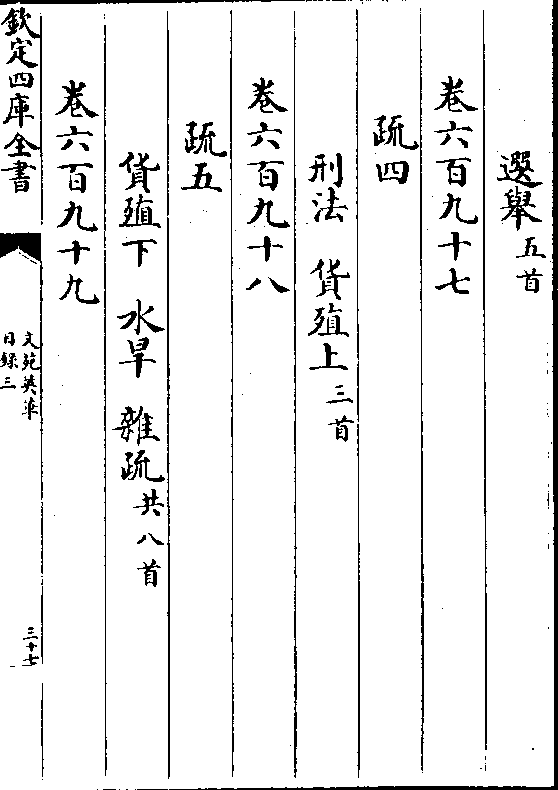 選舉五首
卷六百九十七
疏四
刑法　貨殖上三首
卷六百九十八
疏五
貨殖下　水旱　雜疏共八首
卷六百九十九
欽定四庫全書
文苑英華
目錄三
三十七